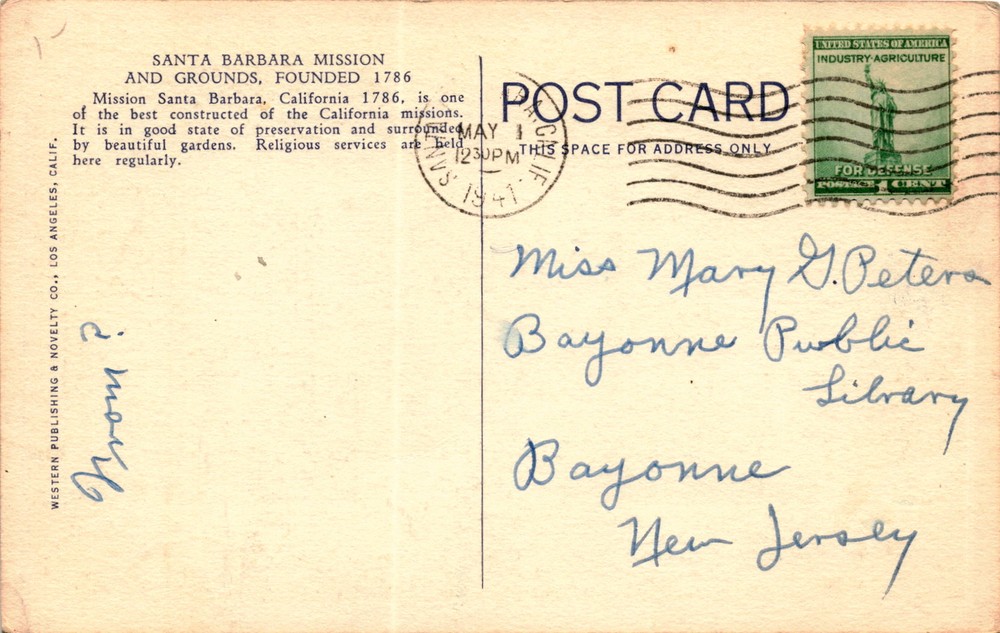 SANTA BARBARA MISSION
AND GROUNDS, FOUNDED 1786
Mission Santa Barbara, California 1786, is one
of the best constructed of the California missions.
It is in good state of preservation and surrounded
by beautiful gardens. Religious services are held
here regularly.
WESTERN PUBLISHING & NOVELTY CO., LOS ANGELES, CALIF.
From ?
POST CARD
THIS SPACE FOR ADDRESS ONLY
MAY 1
1230 PM
1941
CALIF.
UNITED STATES OF AMERICA
INDUSTRY·AGRICULTURE
FOR DEFENSE
POSTAGE 1 CENT
Miss Mary G. Peters
Bayonne Public
Library
Bayonne
New Jersey